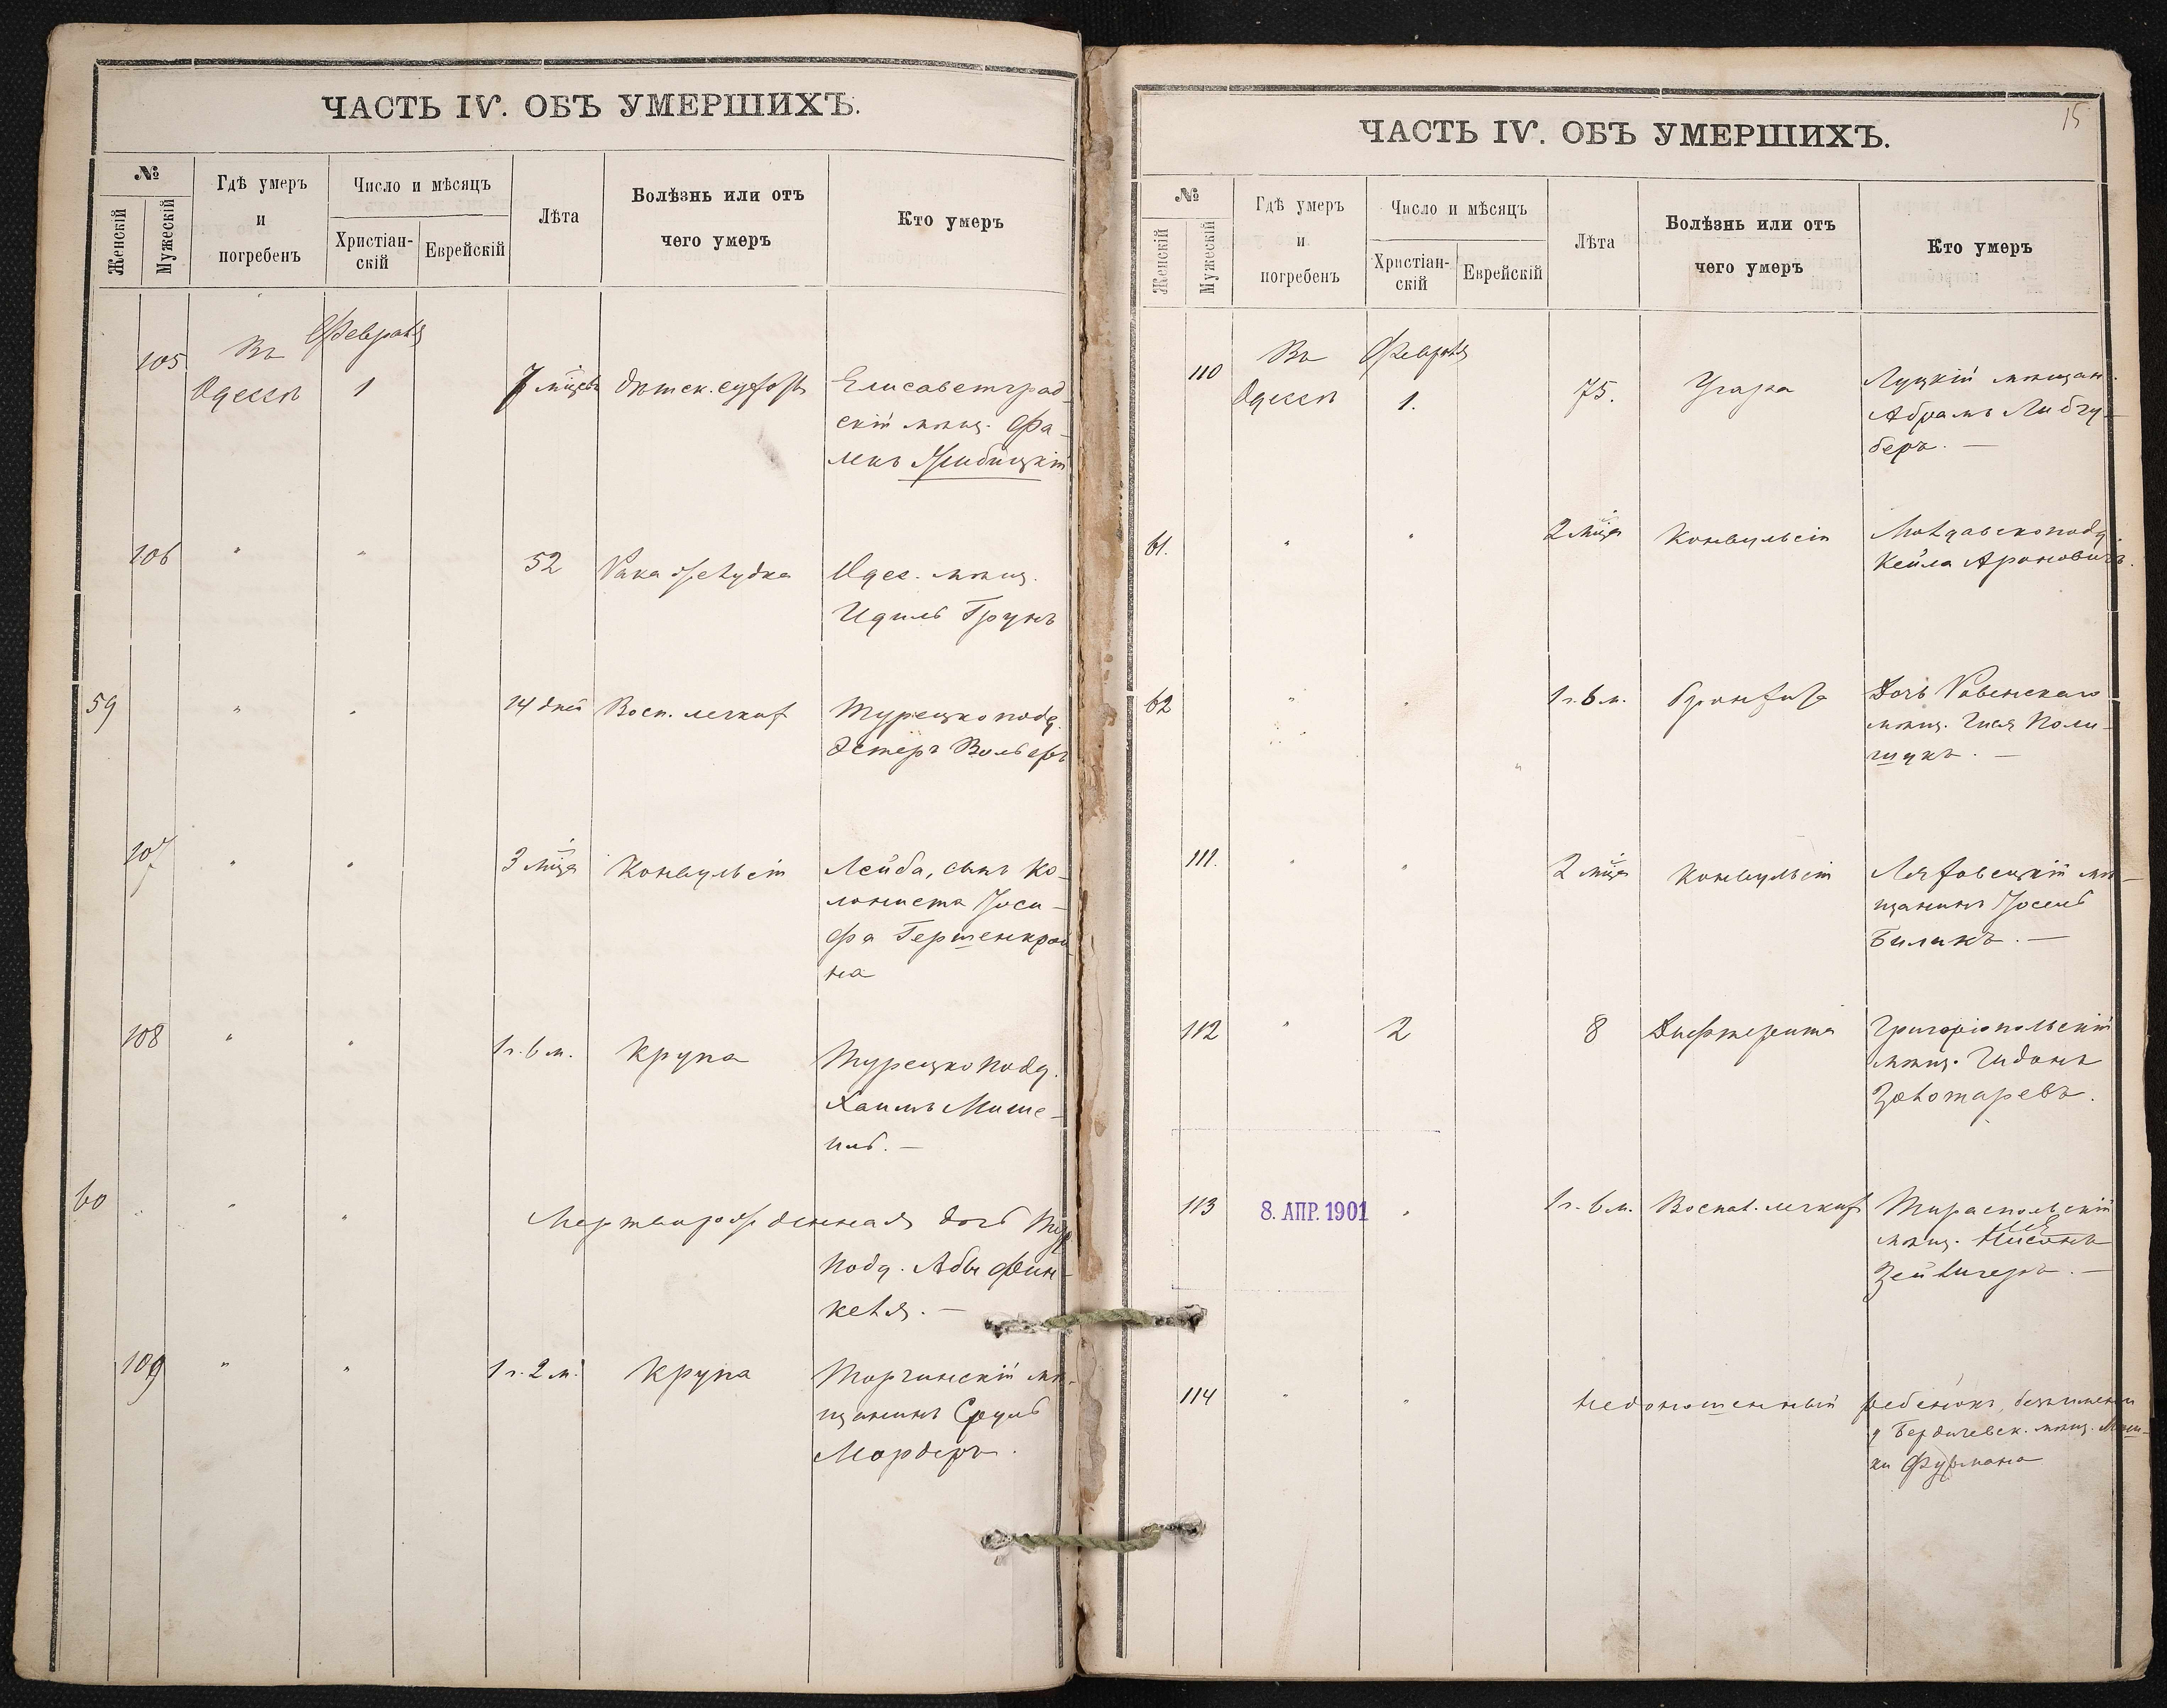 ЧАСТЬ IV. ОБЪ УМЕРШИХЪ.
№
Женскій
Мужескій
Гдѣ умеръ
и
погребенъ
Число и мѣсяцъ
Христіан-
скій
Еврейскій
Лѣта
Болѣзнь или отъ
чего умеръ
Кто умеръ
105
Въ
Одессѣ
Февраля
1
7 мѣсц.
Дѣтск.
Елисаветград-
скій мѣщ. Фа-
лекъ
106
"
"
52
Рака желудка
Одес. мѣщ.
Идель Грунъ
59
"
"
14 дней
Восп. легких
Турецко под.
Эстеръ
107
"
"
3 мца
Конвульсіи
Лейба, сынъ Ко-
лониста Іоси-
фа Гершенкрой
на
108
"
"
1 г. 6 м.
Крупа
Турецко под.
Хаимъ Мише-
иль. —
60
"
"
Мертворожденная дочь Тур.
под. Абы Фин-
келя. —
109
"
"
1 г. 2 м.
Крупа
Торчинскій мѣ-
щанинъ Сруль
Мордеръ.
15
ЧАСТЬ IV. ОБЪ УМЕРШИХЪ.
№
Женскій
Мужескій
Гдѣ умеръ
и
погребенъ
Число и мѣсяцъ
Христіан-
скій
Еврейскій
Лѣта
Болѣзнь или отъ
чего умеръ
Кто умеръ
110
Въ
Одессѣ
Февраля
1.
75.
Угара
Луцкій мѣщан.
Абрамъ Либгу-
беръ. —
61.
"
"
2 мца
Конвульсіи
Молдавско под.
Кейла Ароновичъ.
62
"
"
1 г. 6 м.
Бронхита
Дочь Ровенскаго
мѣщ. Гися Поли-
щукъ. —
111.
"
"
2 мца
Конвульсіи
Ляховецкій мѣ-
щанинъ Іосель
Биликъ. —
112
"
2
8
Дифтерита
Григоріопольскій
мѣщ. Гидонъ
Золотаревъ.
113
8. АПР. 1901
"
1 г. 6 м.
Воспал. легких
Тираспольскій
мѣщ.
Зейлигеръ. —
114
"
"
Недоношенный ребенокъ, безыменный
у Бердичевск. мѣщ. Мош-
ки Фурмана